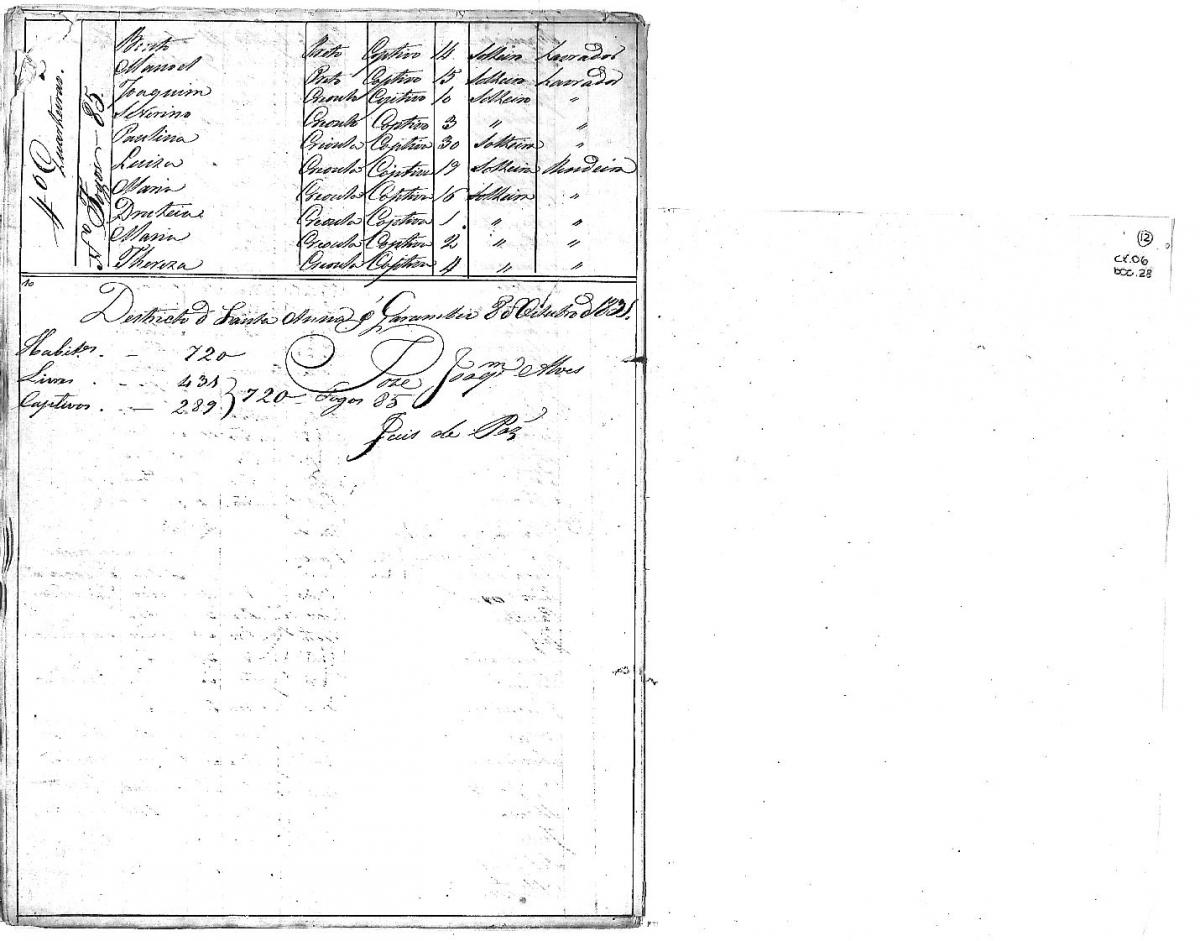 4º Q
Quarteirão.
85 - Fogo
Bento Preto Captivo 14 Solteiro Lavrador
Manoel Preto Captivo 15 Solteiro Lavrador
Joaquim Crioulo Captivo 10 Solteiro "
Severino Crioulo Captivo 3 " "
Paulina Crioula Captiva 30 Solteira "
Luiza Crioula Captiva 19 Solteira Rendeira
Maria Crioula Captiva 16 Solteira "
Crioula Captiva 1 " "
Maria Crioula Captiva 2 " "
Thereza Crioula Captiva 4 " "
10
Destricto d Santa Anna Garambeo 8 d Oitubro d 1831.
Habites. - 720
Livres - 431
Captivos. - 289 } 720 - Fogos 85
Joze Joaqm Alves
Juis de Paz
12
cx.06
DOC.28